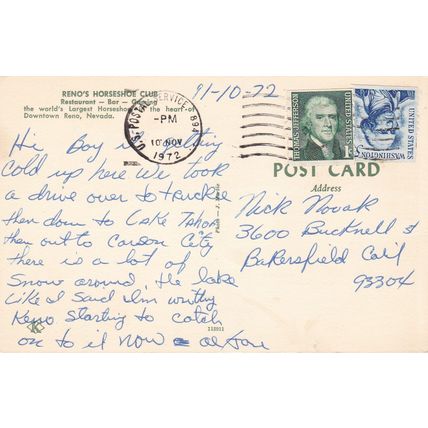 RENO'S HORSESHOE CLUB
Restaurant — Bar — Gaming
the world's Largest Horseshoe in the heart of
Downtown Reno, Nevada.
11-10-72
U.S. POSTAL SERVICE 894
-PM
10 NOV
1972
THOMAS JEFFERSON
UNITED STATES
1c
WASHINGTON
UNITED STATES
5c
Hi Boy is getting
Cold up here we took
a drive over to truckie
then down to LAKE TAHOE
then out to Carson City
there is a lot of
Snow around the lake
Like I said I'm
Keno Starting to catch
on to it now
POST CARD
Address
Nick Novak
3600 Bucknell st
Bakersfield Calif
93304
K